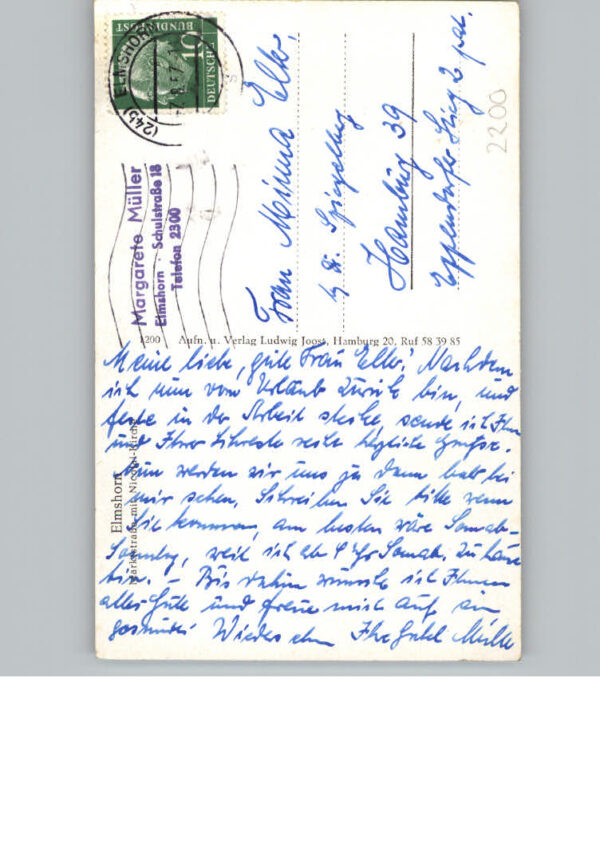 (24b) ELMSHORN
DEUTSCHE
BUNDESPOST
10
Margarete Müller
Elmshorn · Schulstraße 18
Telefon 2300
Frau Minna Elko,
b/ Dr. Spiegelberg
Hamburg 39
Eppendorfer Stieg 2 ptr.
2200
1200 Aufn. u. Verlag Ludwig Joost, Hamburg 20, Ruf 58 39 85
Elmshorn
Marktstraße mit Nicolai-Kirche
Meine liebe, gute Frau Elko! Nachdem
ich nun vom Urlaub zurück bin, und
feste in der Arbeit stecke, sende ich Ihnen
und Ihrer Schwester recht herzliche Grüße.
Nun werden wir uns ja dann bald bei
mir sehen. Schreiben Sie bitte wenn
Sie kommen, am besten wäre Sonnab-
Sonntag, weil ich ab 4 Uhr Sonnab. zu hause
bin. – Bis dahin wünsche ich Ihnen
alles Gute und freue mich auf ein
gesundes Wiedersehn Ihre Müller